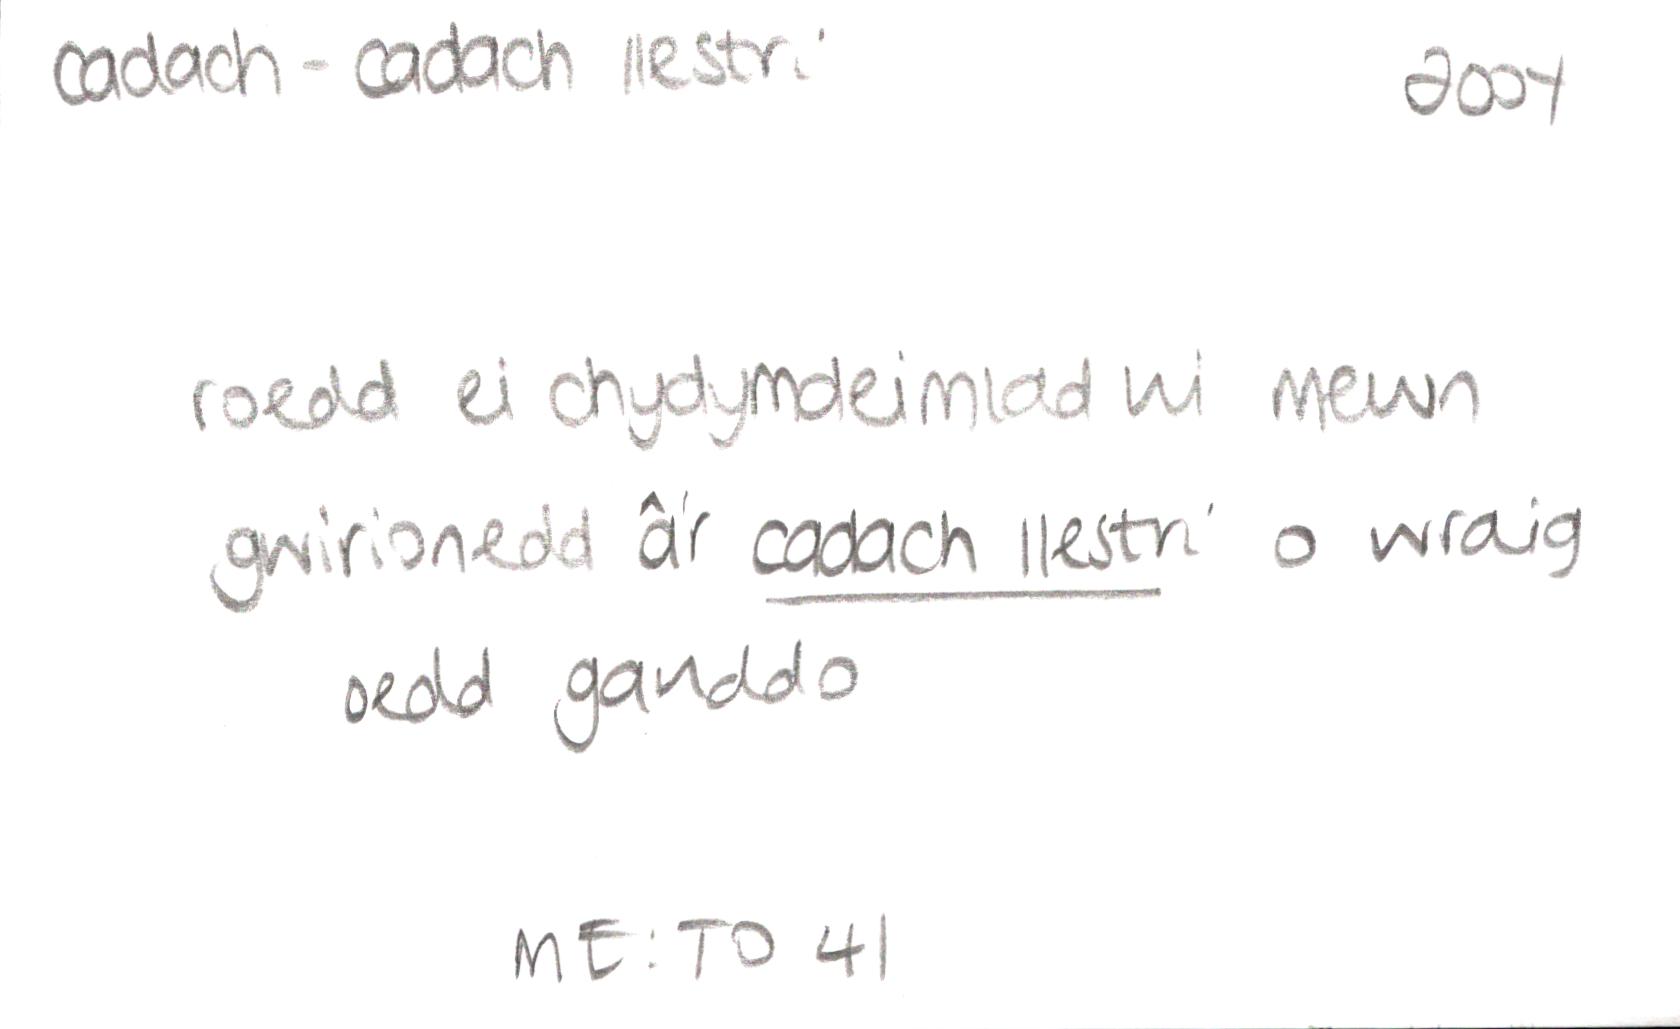 cadach - cadach llestri
2004
roedd ei chydymdeimlad hi mewn
gwirionedd â'r cadach llestri o wraig
oedd ganddo
ME: TO 41